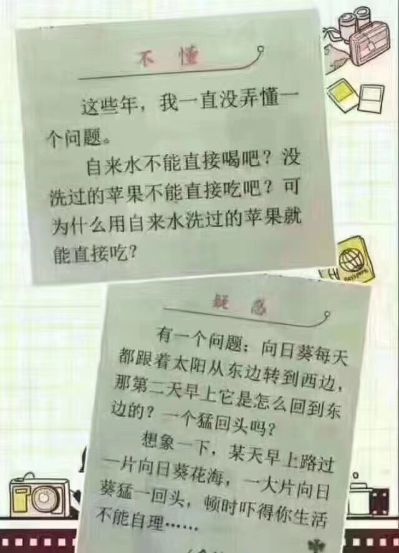 不懂
这些年，我一直没弄懂一
个问题。
自来水不能直接喝吧？没
洗过的苹果不能直接吃吧？可
为什么用自来水洗过的苹果就
能直接吃？
疑惑
有一个问题：向日葵每天
都跟着太阳从东边转到西边，
那第二天早上它是怎么回到东
边的？一个猛回头吗？
想象一下，某天早上路过
一片向日葵花海，一大片向日
葵猛一回头，顿时吓得你生活
不能自理……